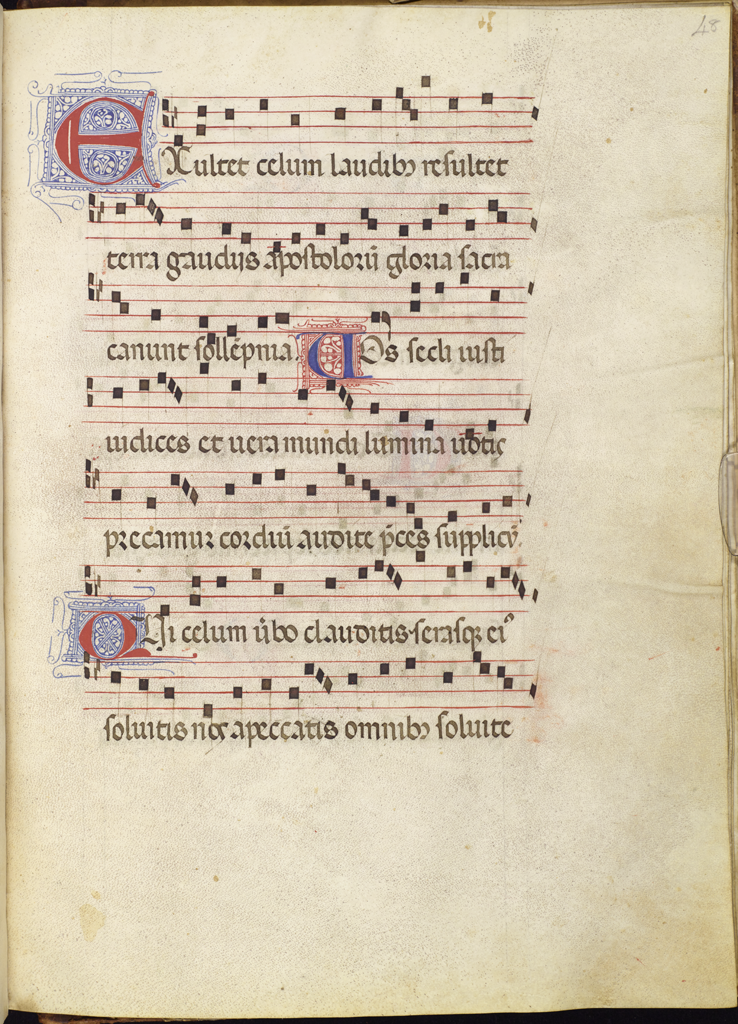 48
EXultet celum laudibꝫ resultet
terra gaudijs apostoloꝝ̄ gloria sacra
canunt sollēpnia. Vos secli iusti
iudices et uera mundi lumina uotis
precamur cordiū audite p̄ces supplicū.
QUi celum ūbo clauditis serasqꝫ eiꝰ
soluitis nos a peccatis omnibꝫ soluite